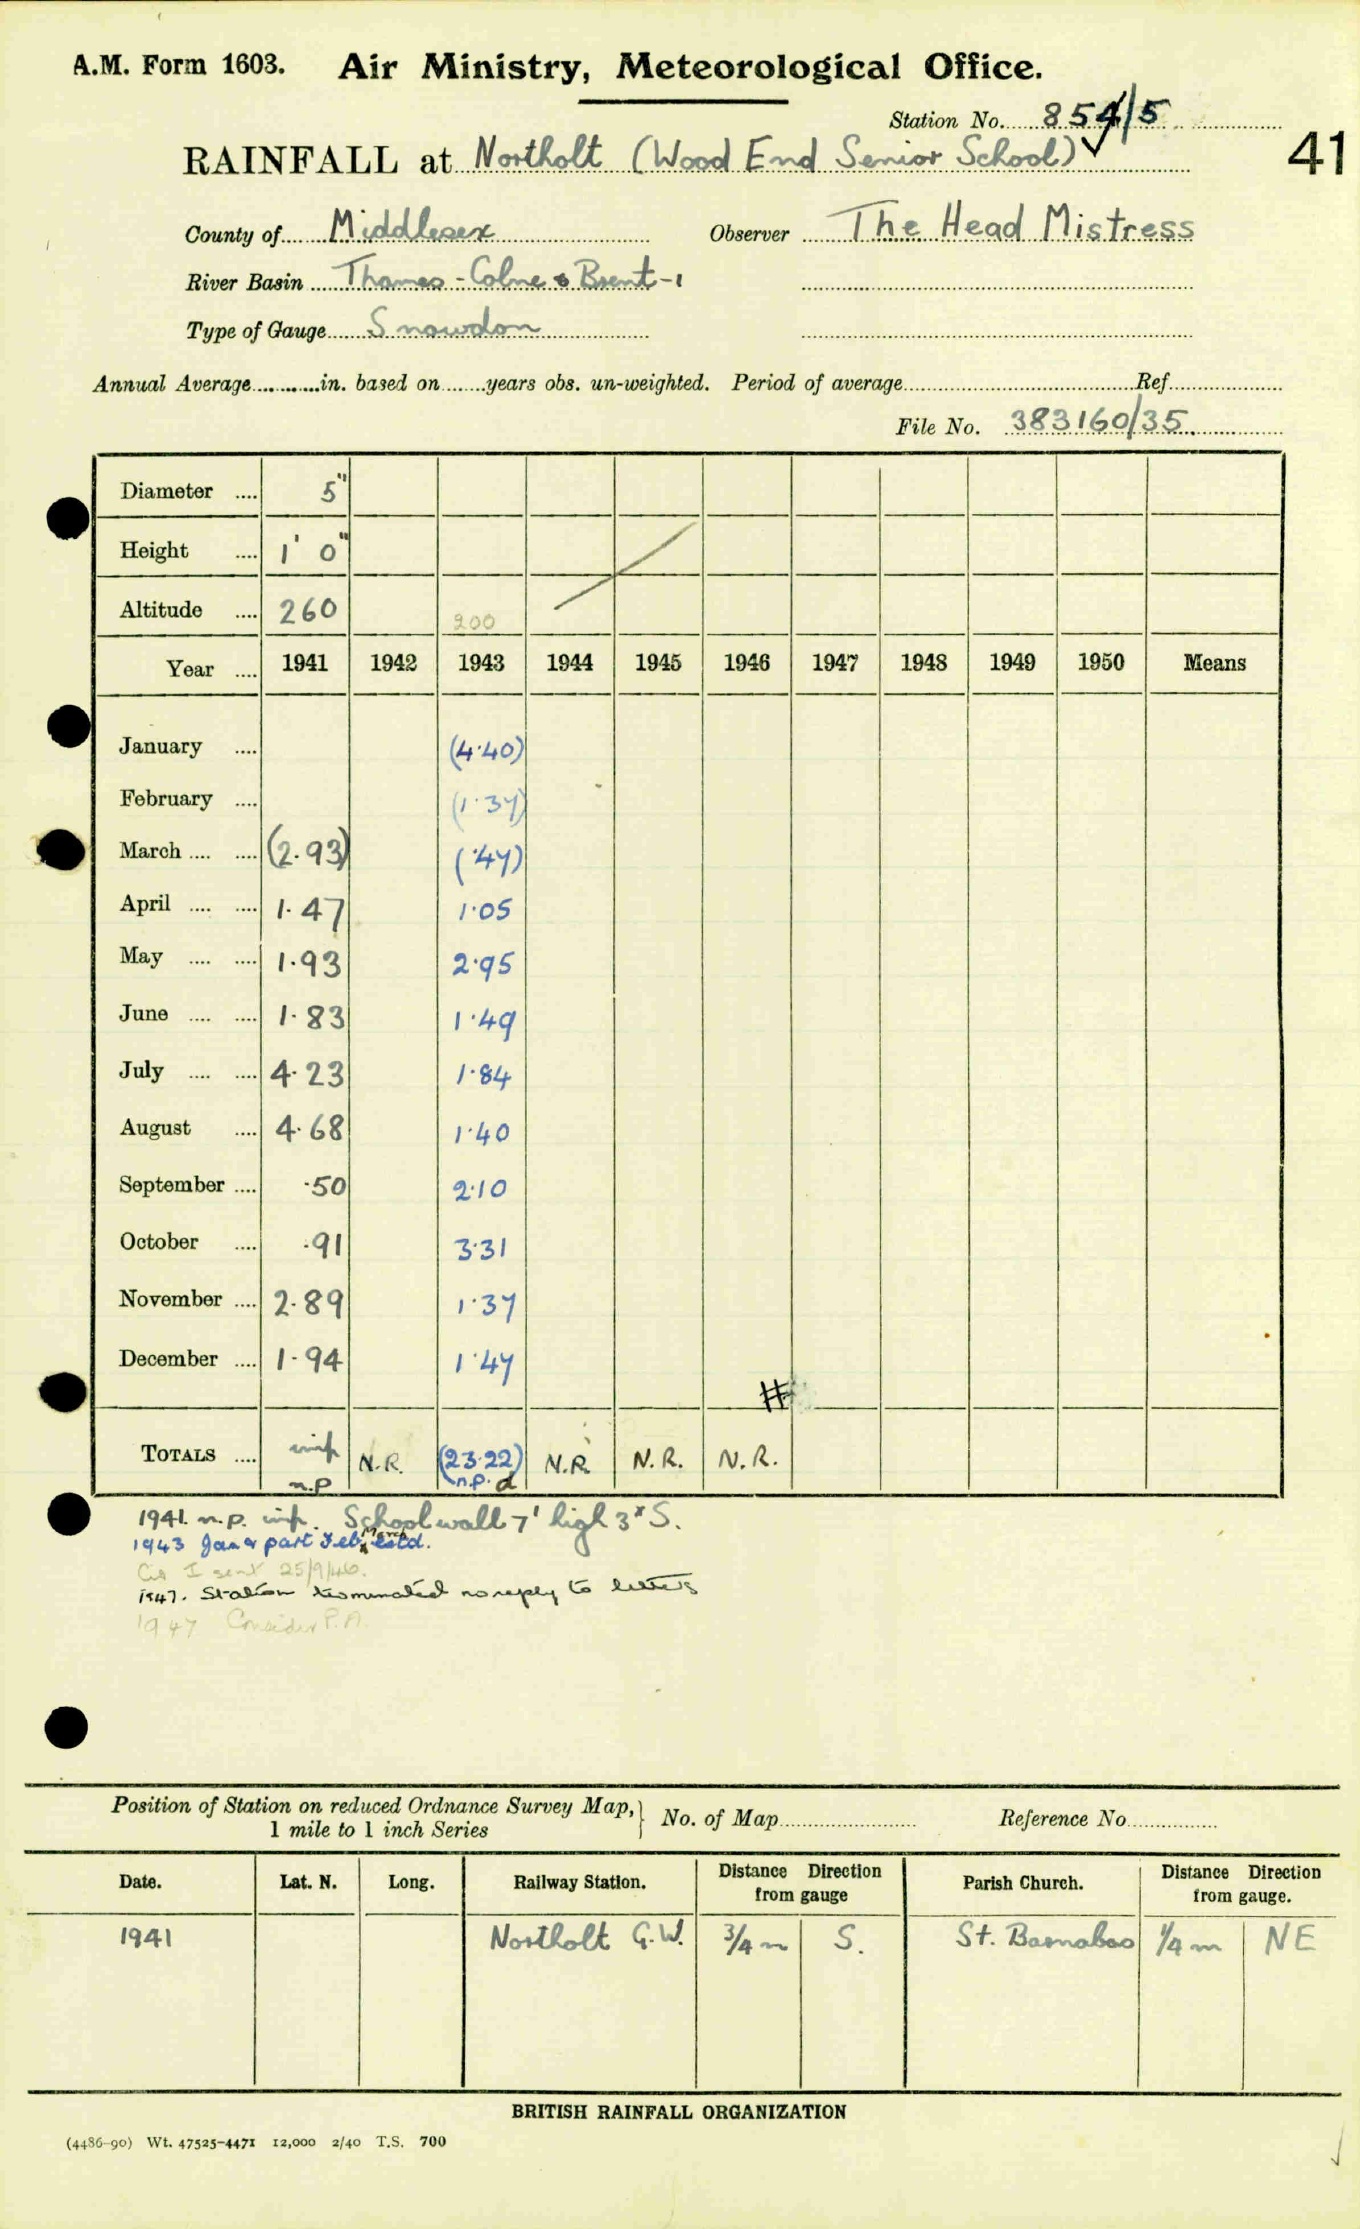 A.M. Form 1603. Air Ministry, Meteorological Office.
Station No. 854/5
RAINFALL at Northolt (Wood End Senior School)
41
County of Middlesex Observer The Head Mistress
River Basin Thames - Colne & Brent - 1
Type of Gauge Snowdon
Annual Average in. based on years obs. un-weighted. Period of average Ref.
File No. 383160/35.
Diameter 5"
Height 1' 0"
Altitude 260 200
Year 1941 1942 1943 1944 1945 1946 1947 1948 1949 1950 Means
January (4.40)
February (1.37)
March (2.93) (.47)
April 1.47 1.05
May 1.93 2.95
June 1.83 1.49
July 4.23 1.84
August 4.68 1.40
September .50 2.10
October .91 3.31
November 2.89 1.37
December 1.94 1.47
TOTALS imp N.R. (23.22) N.R. N.R. N.R.
n.p n.p. d
1941. n.p. imp. School wall 7' high 3x S.
1943 Jan & part Feb, March estd.
I sent 25/9/46.
1947. Station terminated no reply to letters
1947 Consider P.A.
Position of Station on reduced Ordnance Survey Map, No. of Map Reference No.
1 mile to 1 inch Series
Date. Lat. N. Long. Railway Station. Distance Direction from gauge Parish Church. Distance Direction from gauge.
1941 Northolt G.W. 3/4 m S. St. Barnabas 1/4 m NE
BRITISH RAINFALL ORGANIZATION
(4486-90) Wt. 47525-4471 12,000 2/40 T.S. 700